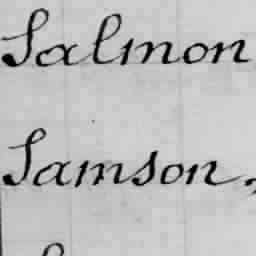 Salmon
Samson,